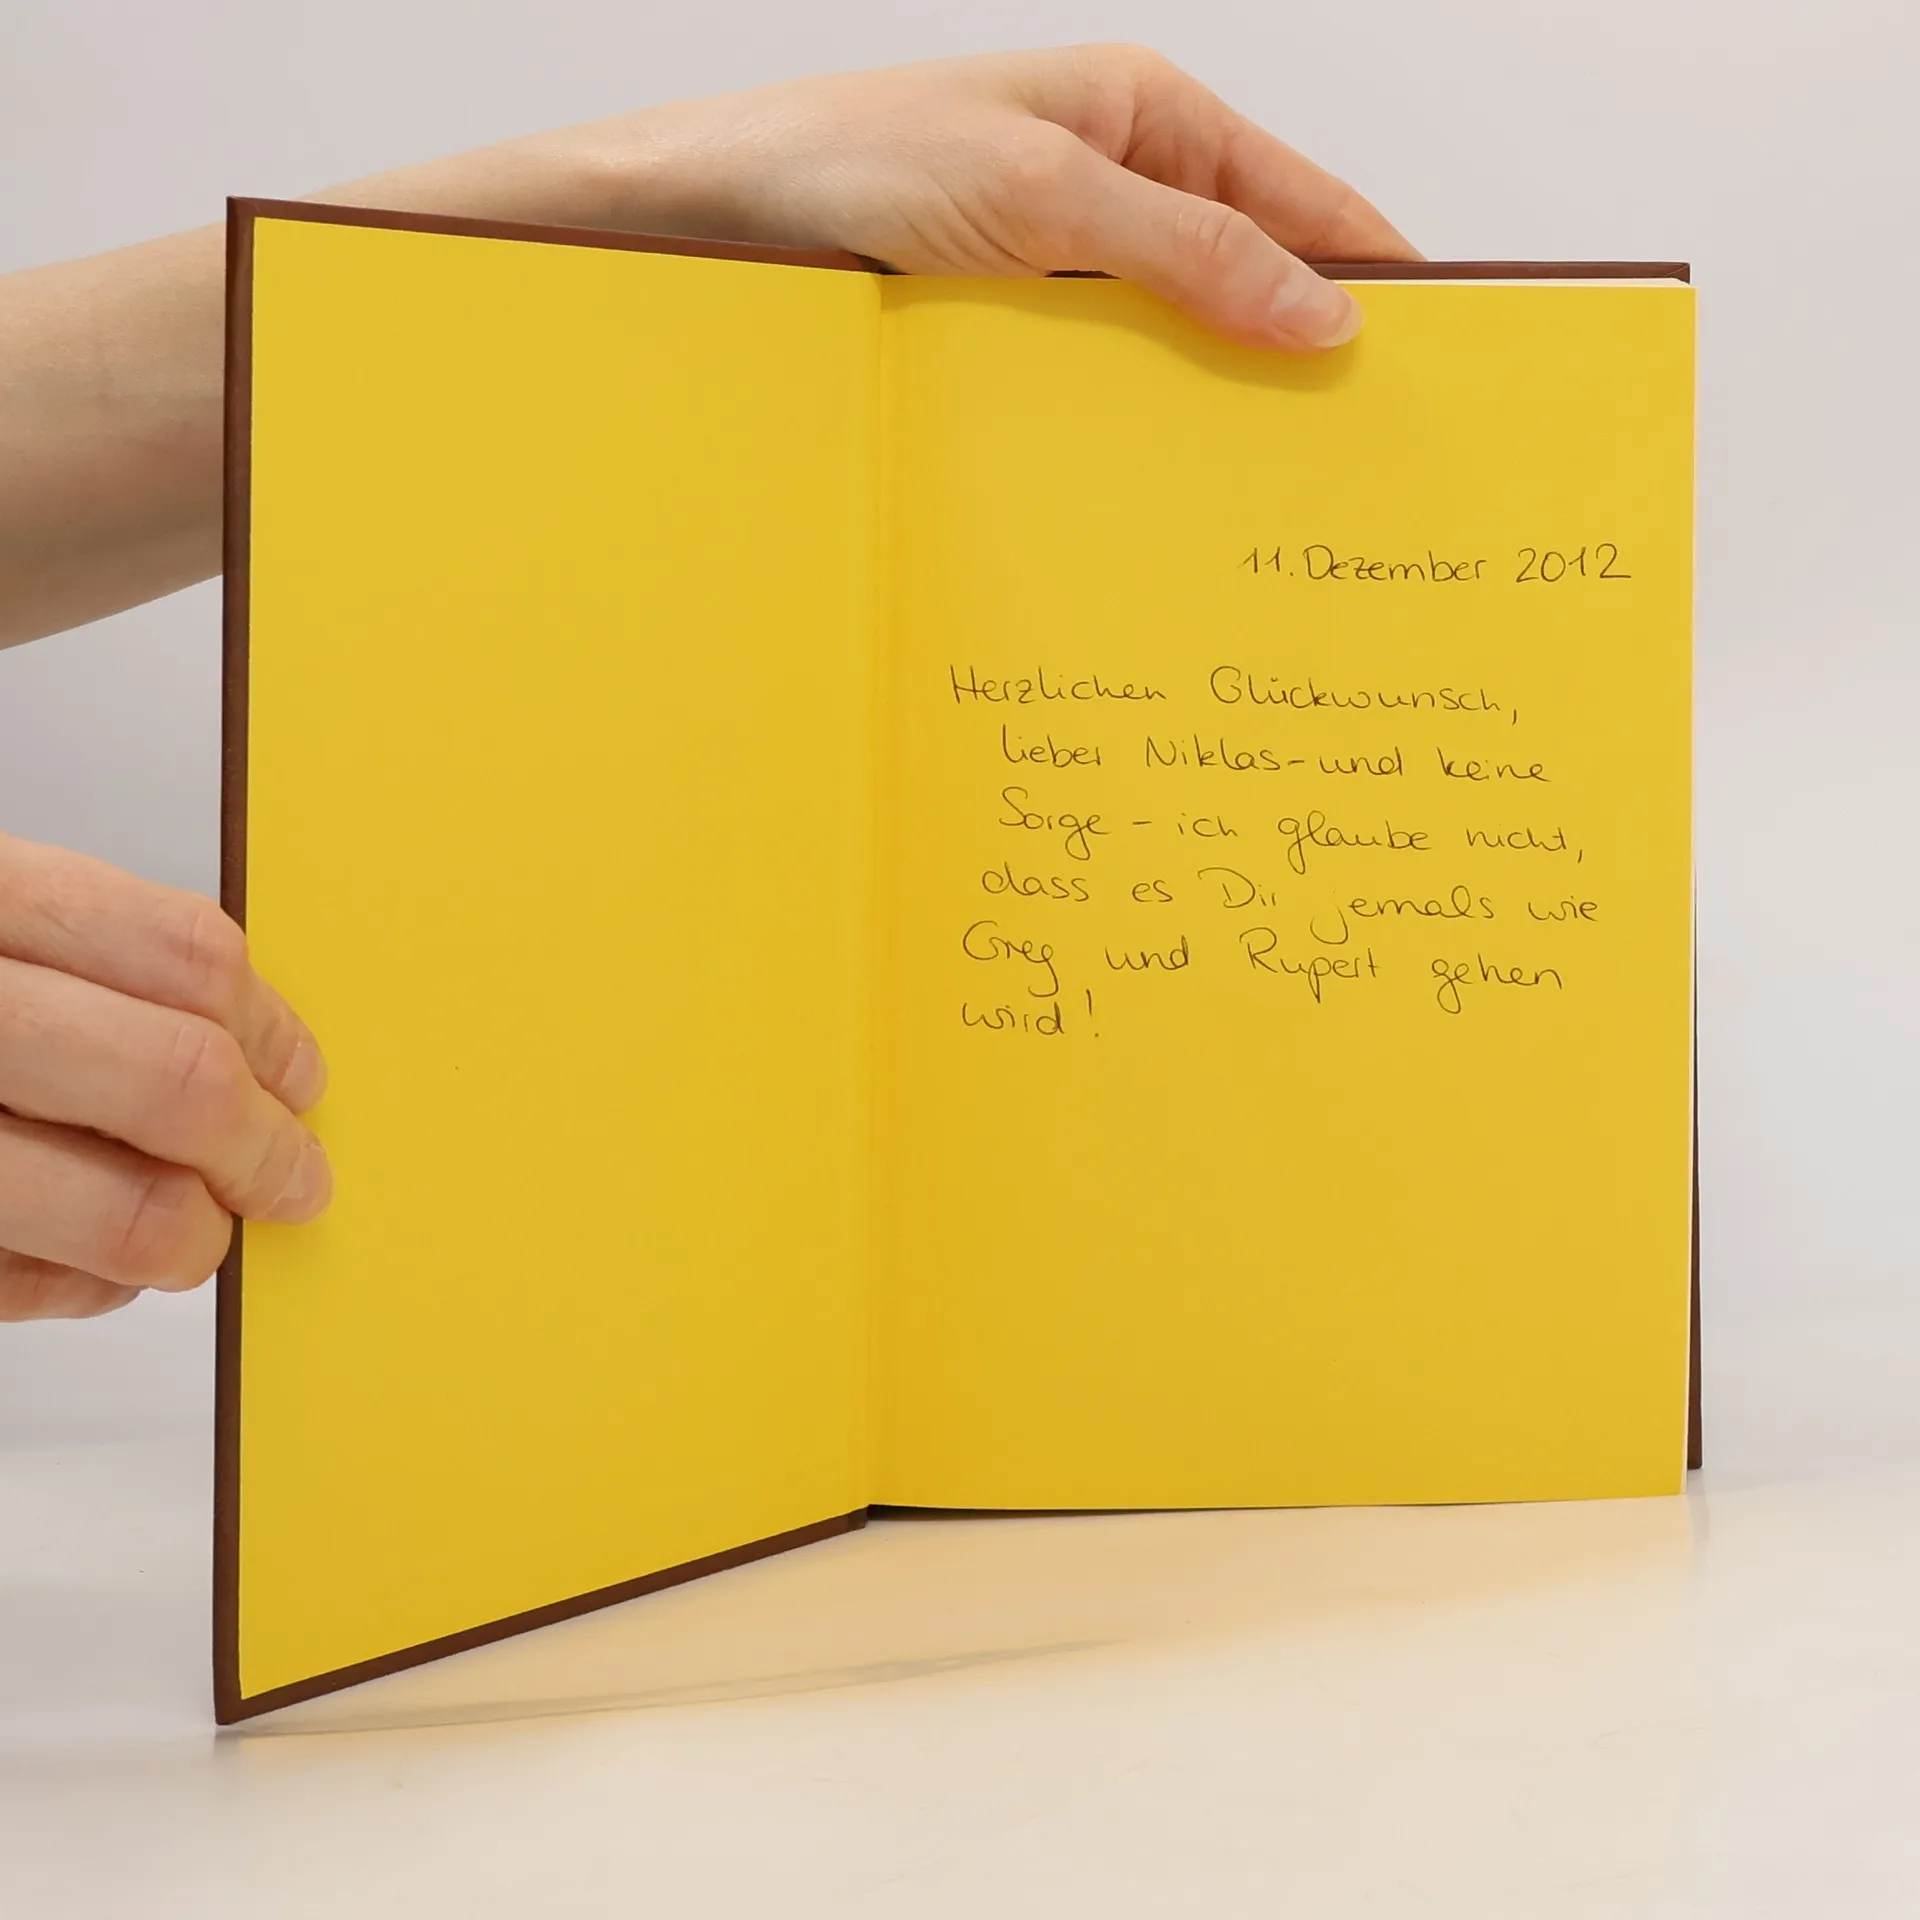 11. Dezember 2012
Herzlichen Glückwunsch,
lieber Niklas - und keine
Sorge - ich glaube nicht,
dass es Dir jemals wie
Greg und Rupert gehen
wird!